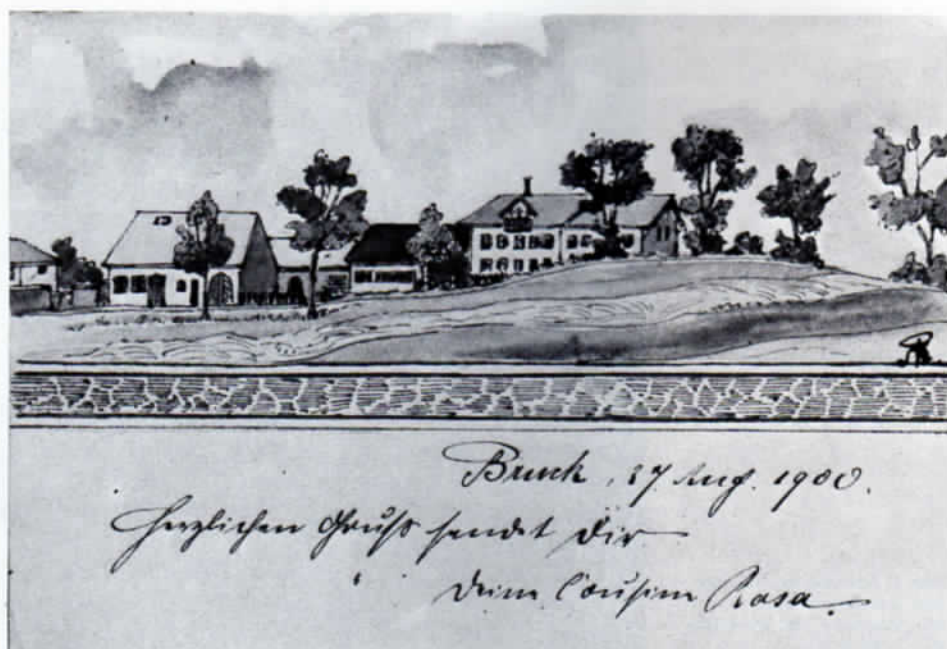 Bruck, 27 Aug. 1900.
Herzlichen Gruß sendet Dir
Deine Cousine Rosa.